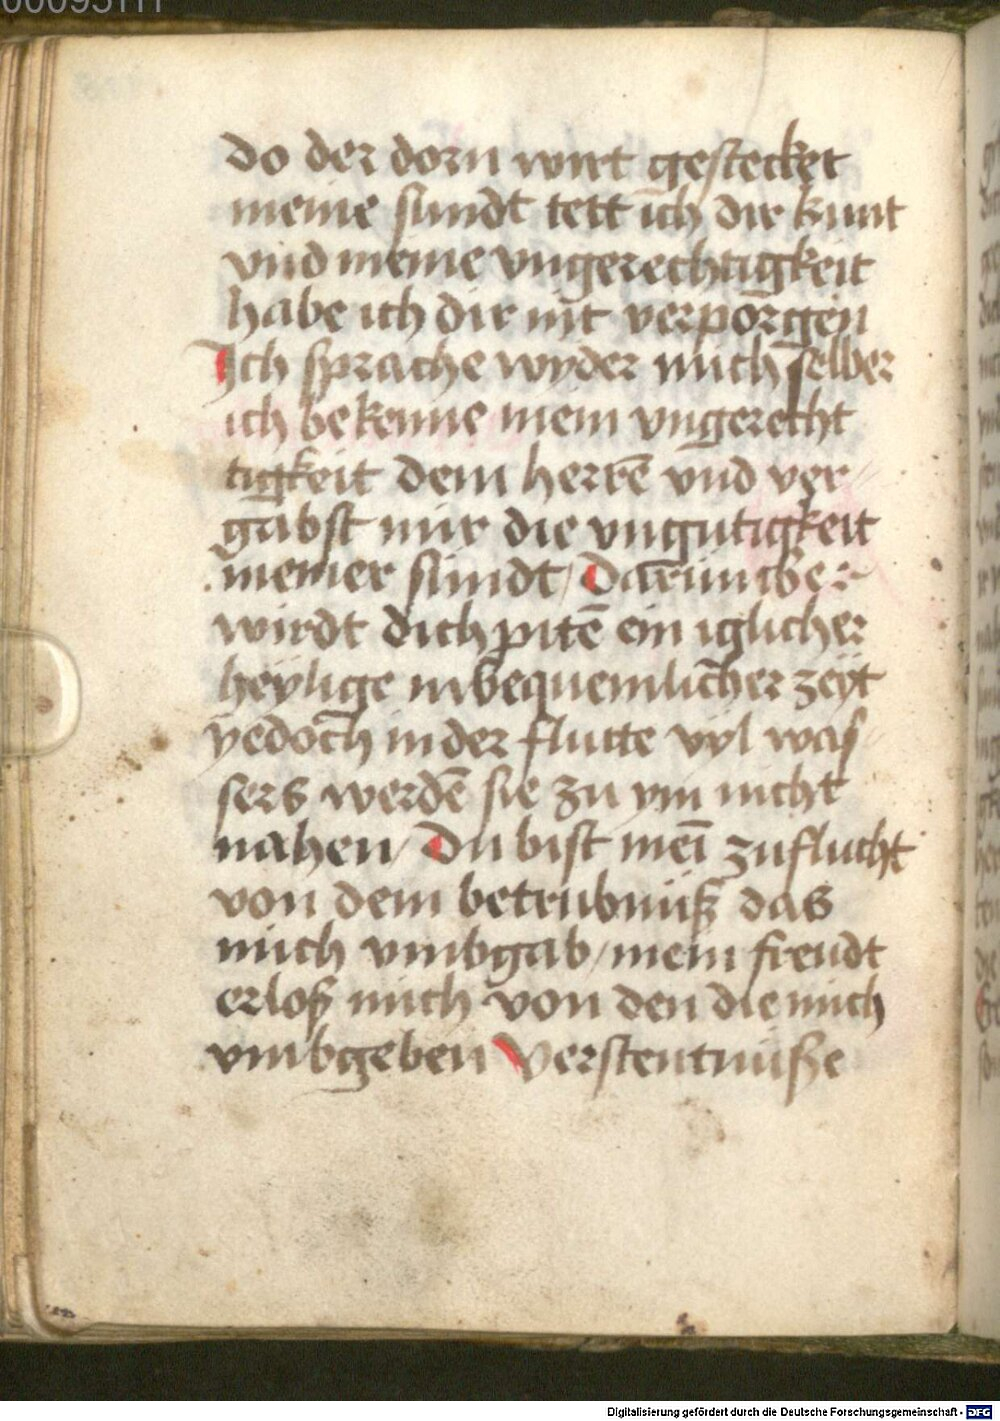 do der dorn wirt gestecket
meine sundt tett ich dir kunt
vnd meine vngerechtigkeit
habe ich dir nit verporgen
Ich sprache wyder mich selber
ich bekenne mein vngerecht
tigkeit dem herrē vnd ver⸗
gabst mir die vngutigkeit
meiner sundt / Darumber
wirdt dich pitē ein iglicher
heylige in bequemlicher zeyt
yedoch in der flutte vyl was⸗
sers werdē sie zu ym nicht
nahen / Du bist meī zuflucht
von dem betrubnuß das
mich vmbgab / mein freudt
erloß mich von den die mich
vmbgeben Verstentnuße
Digitalisierung gefördert durch die Deutsche Forschungsgemeinschaft - DFG